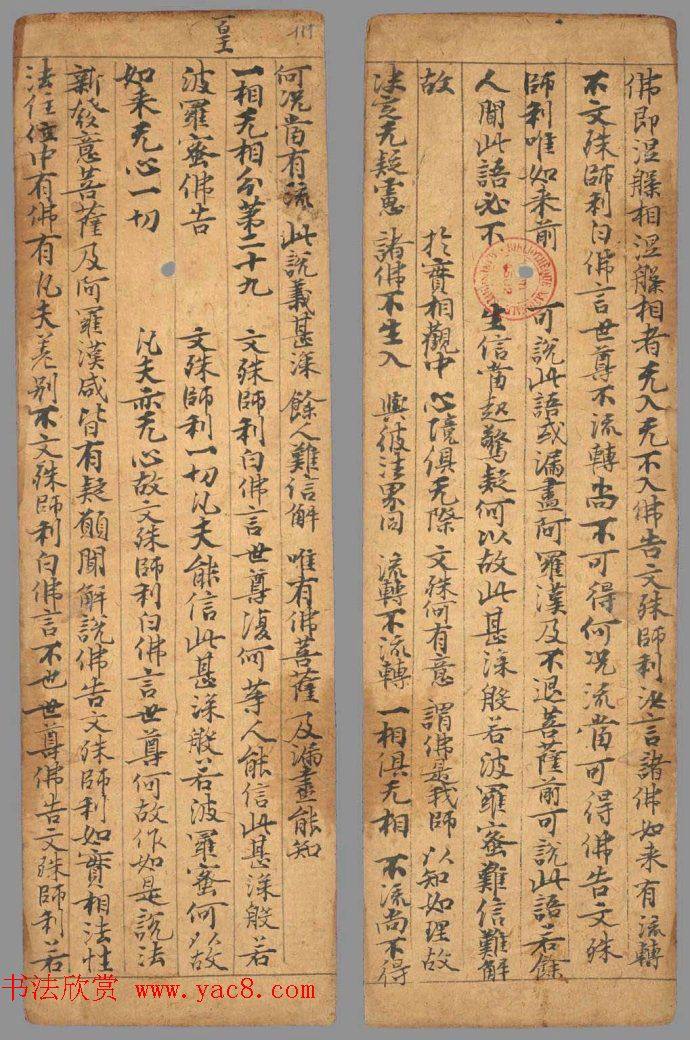 佛即涅槃相涅槃相者无入无不入佛告文殊師利汝言諸佛如来有流轉
不文殊師利白佛言世尊不流轉尚不可得何況流當可得佛告文殊
師利唯如来前 可說此語或漏盡阿羅漢及不退菩薩前可說此語若餘
人聞此語必不 生信當起驚疑何以故此甚深般若波羅蜜難信難解
故 於實相觀中 心境俱无際 文殊何有意 謂佛是我師 以知如理故
决定无疑慮 諸佛不生入 與彼法界同 流轉不流轉 一相俱无相 不流尚不得
百王
111
何况當有流 此說義甚深 餘人難信解 唯有佛菩薩 及漏盡能知
一相无相分第二十九 文殊師利白佛言世尊復何等人能信此甚深般若
波羅蜜佛告 文殊師利一切凡夫能信此甚深般若波羅蜜何以故
如来无心一切 凡夫亦无心故文殊師利白佛言世尊何故作如是說法
新發意菩薩及阿羅漢咸皆有疑願聞解說佛告文殊師利如實相法性
法住位中有佛有凡夫差别不文殊師利白佛言不也世尊佛告文殊師利若
书法欣赏 www.yac8.com